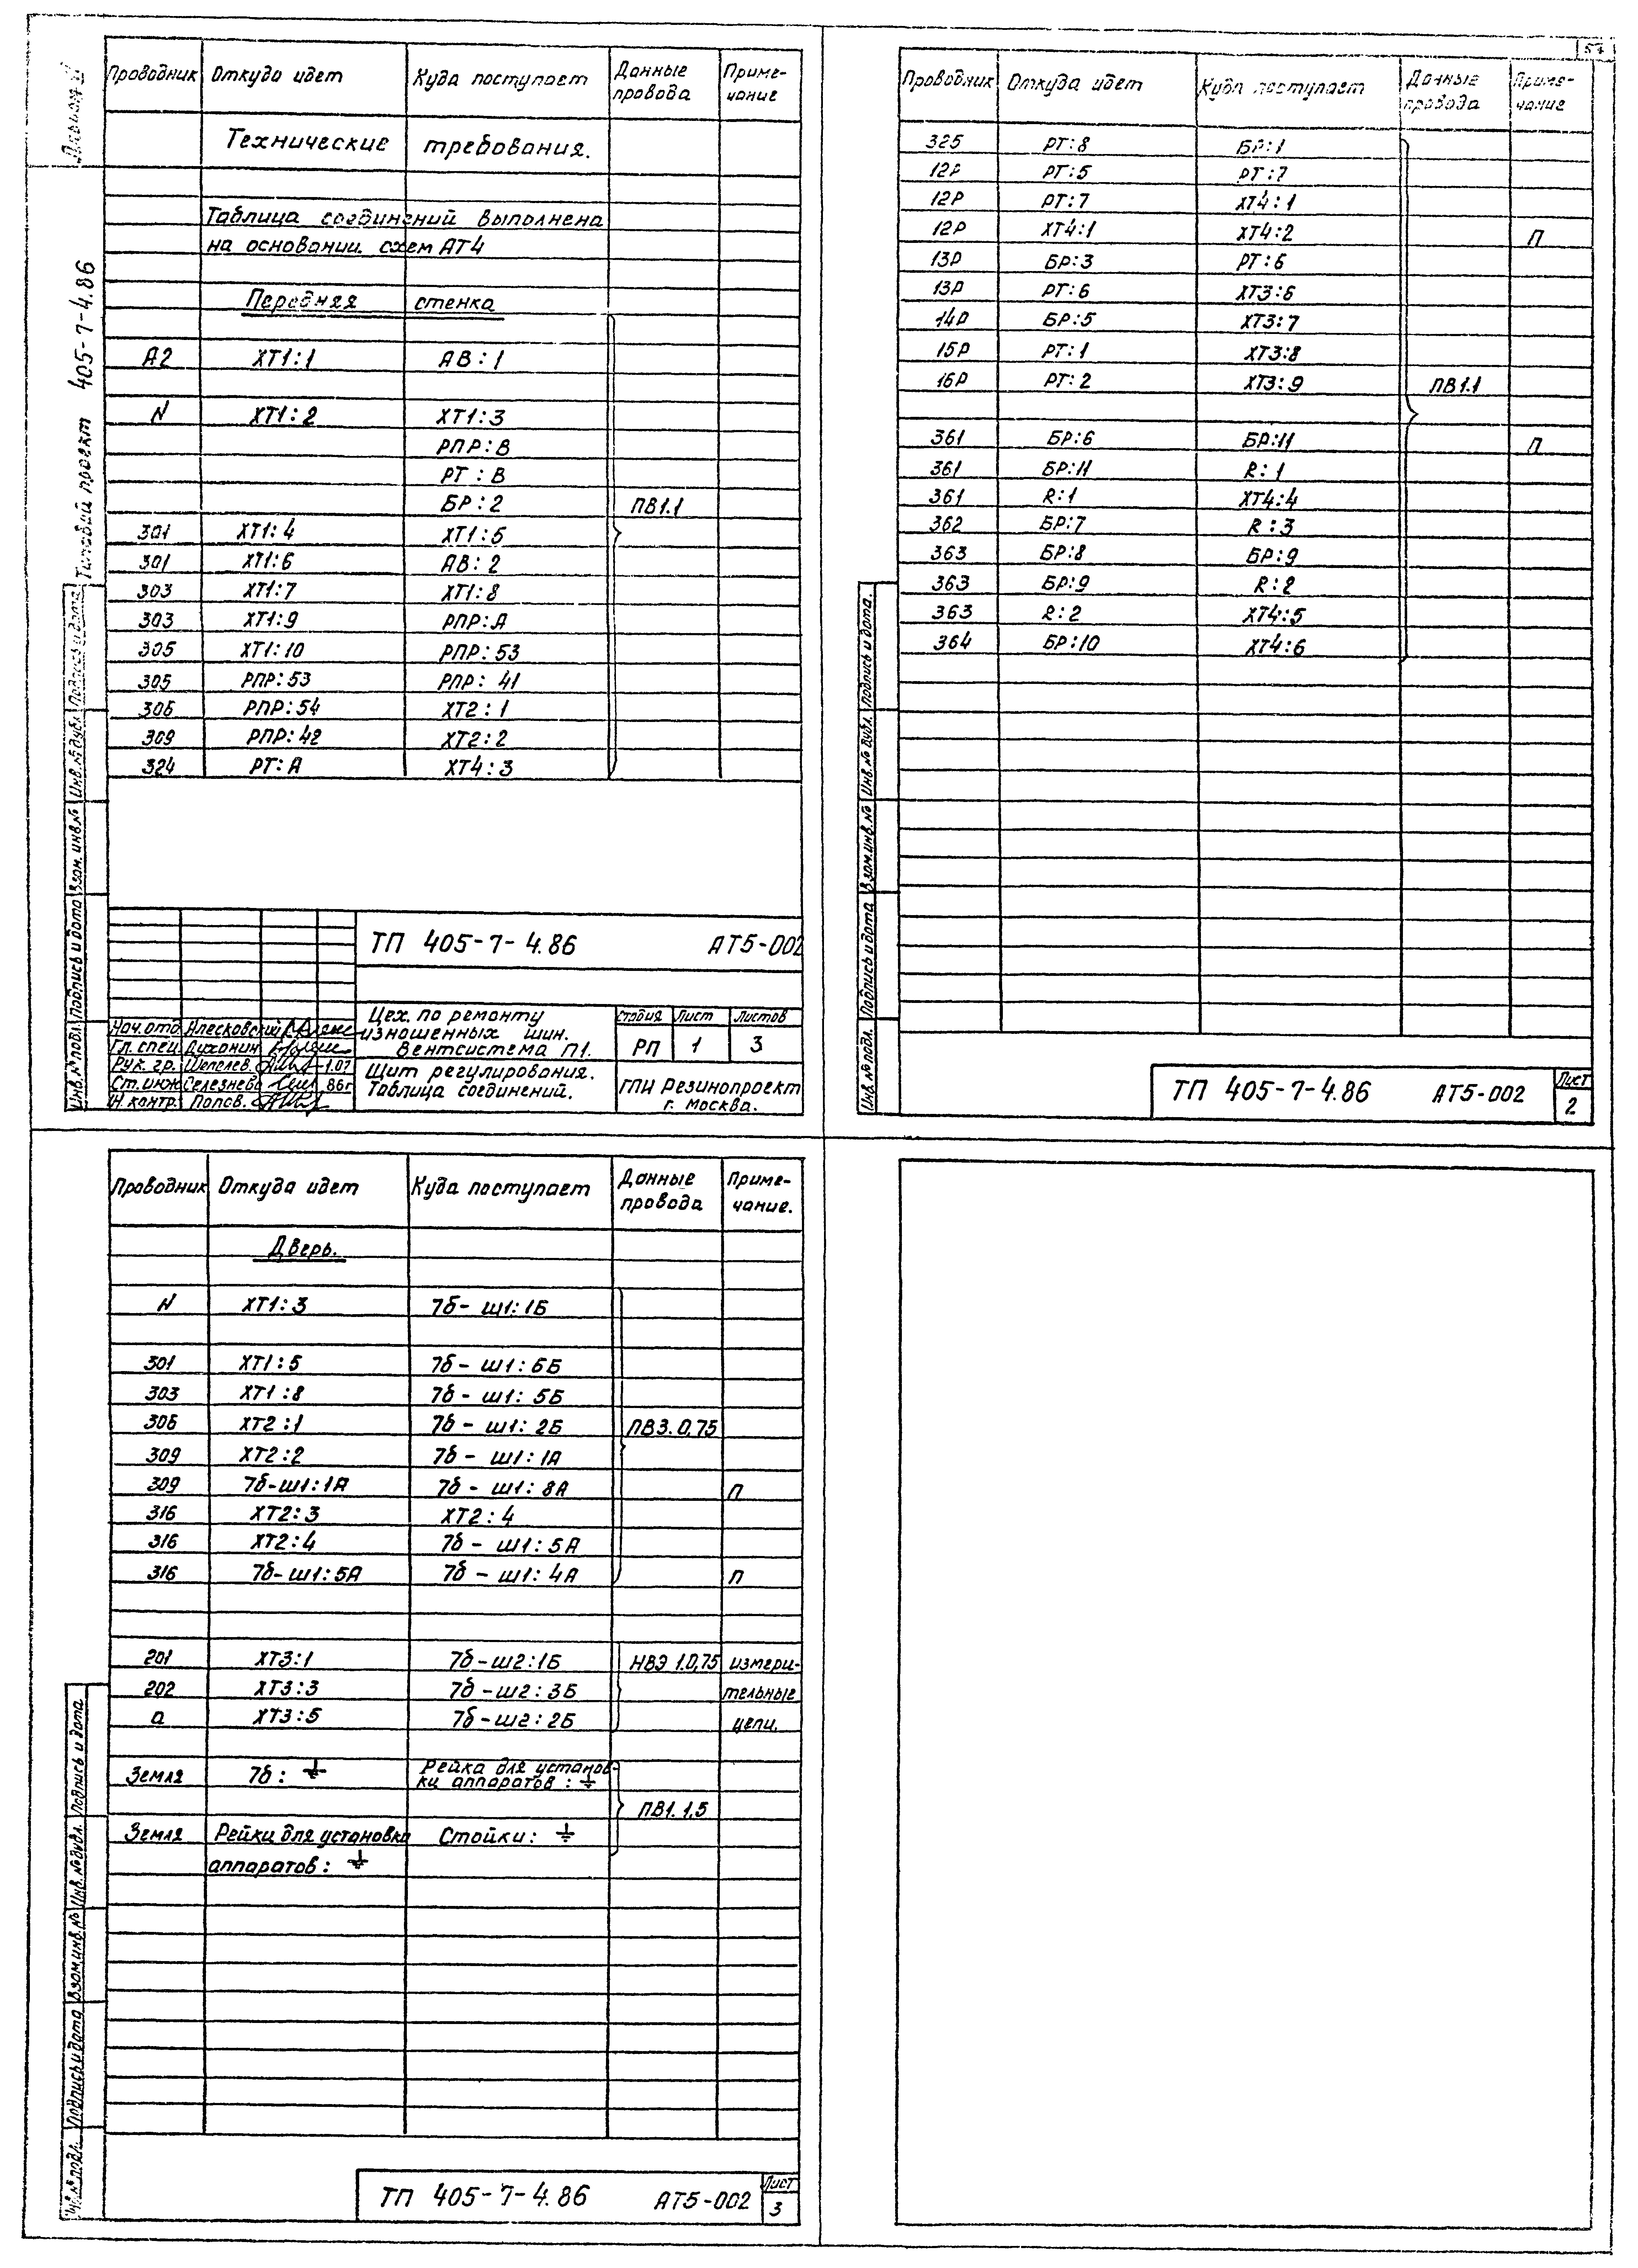 57
Типовой проект 405-7-4.86
Проводник Откуда идет Куда поступает Данные провода Приме-чание
Технические требования.
Таблица соединений выполнена
на основании схем АТ4
Передняя стенка
А2 ХТ1:1 АВ:1
N ХТ1:2 ХТ1:3
РПР:В
РТ:В
БР:2 ПВ1.1
301 ХТ1:4 ХТ1:5
301 ХТ1:6 АВ:2
303 ХТ1:7 ХТ1:8
303 ХТ1:9 РПР:А
305 ХТ1:10 РПР:53
305 РПР:53 РПР:41
306 РПР:54 ХТ2:1
309 РПР:42 ХТ2:2
324 РТ:А ХТ4:3
ТП 405-7-4.86 АТ5-002
Цех по ремонту
изношенных шин.
Вентсистема П1.
Стадия Лист Листов
РП 1 3
Щит регулирования.
Таблица соединений.
ГПИ Резинопроект
г. Москва.
Нач.отд. Алесковский
Гл. спец. Духанин
Рук. гр. Шепелев. 1.07
Ст. инж Селезнева 86г
Н. контр. Попов.
Инв.№ подл. Подпись и дата Взам. инв.№ Инв.№ дубл. Подпись и дата
Проводник Откуда идет Куда поступает Данные провода Приме-чание
325 РТ:8 БР:1
12Р РТ:5 РТ:7
12Р РТ:7 ХТ4:1
12Р ХТ4:1 ХТ4:2 П
13Р БР:3 РТ:6
13Р РТ:6 ХТ3:6
14Р БР:5 ХТ3:7
15Р РТ:1 ХТ3:8
16Р РТ:2 ХТ3:9 ПВ1.1
361 БР:6 БР:11 П
361 БР:11 R:1
361 R:1 ХТ4:4
362 БР:7 R:3
363 БР:8 БР:9
363 БР:9 R:2
363 R:2 ХТ4:5
364 БР:10 ХТ4:6
Инв.№ подл. Подпись и дата Взам.инв.№ Инв.№ дубл. Подпись и дата.
ТП 405-7-4.86 АТ5-002 Лист
2
Проводник Откуда идет Куда поступает Данные провода Приме-чание.
Дверь.
N ХТ1:3 7б-ш1:1Б
301 ХТ1:5 7б-ш1:6Б
303 ХТ1:8 7б-ш1:5Б
306 ХТ2:1 7б-ш1:2Б ПВ3.0,75
309 ХТ2:2 7б-ш1:1А
309 7б-ш1:1А 7б-ш1:8А П
316 ХТ2:3 ХТ2:4
316 ХТ2:4 7б-ш1:5А
316 7б-ш1:5А 7б-ш1:4А П
201 ХТ3:1 7б-ш2:1Б НВЭ 1.0,75 измери-
202 ХТ3:3 7б-ш2:3Б тельные
а ХТ3:5 7б-ш2:2Б цепи.
Земля 7б:⏚ Рейка для установ-
ки аппаратов:⏚
ПВ1.1,5
Земля Рейки для установки Стойки:⏚
аппаратов:⏚
Инв.№ подл. Подпись и дата Взам.инв.№ Инв.№ дубл. Подпись и дата
ТП 405-7-4.86 АТ5-002 Лист
3